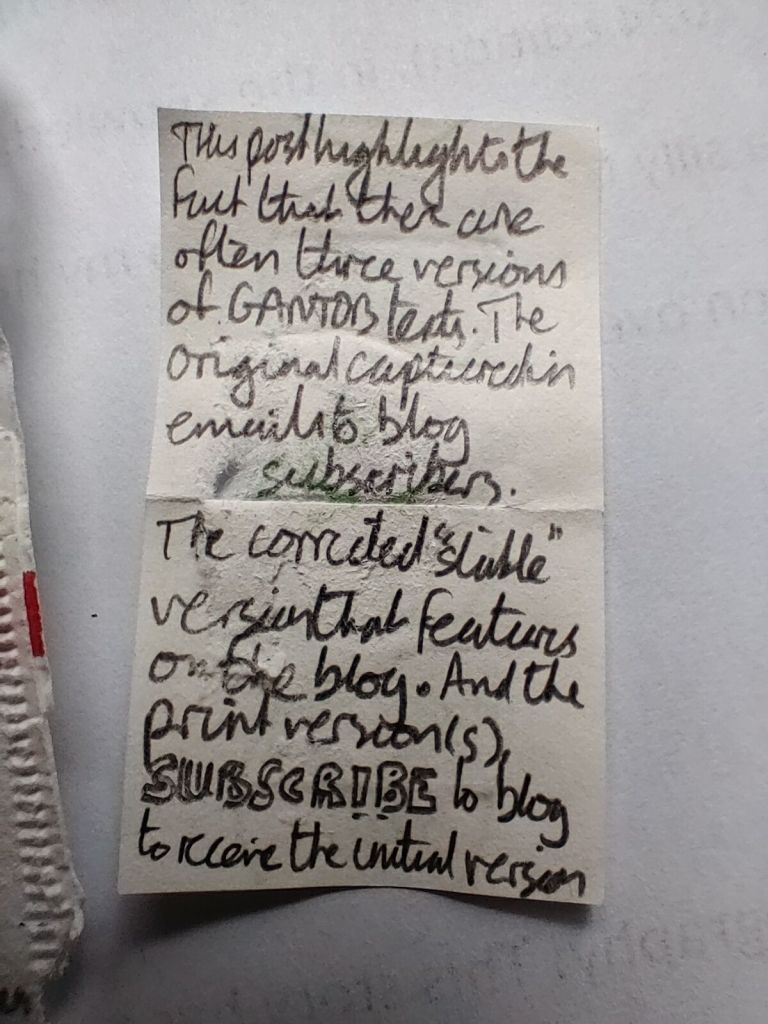 This post highlights the
fact that there are
often three versions
of GANTOB texts. The
original captured in
emails to blog
subscribers.
The corrected "stable"
version that features
on the blog. And the
print version(s).
SUBSCRIBE to blog
to receive the initial version